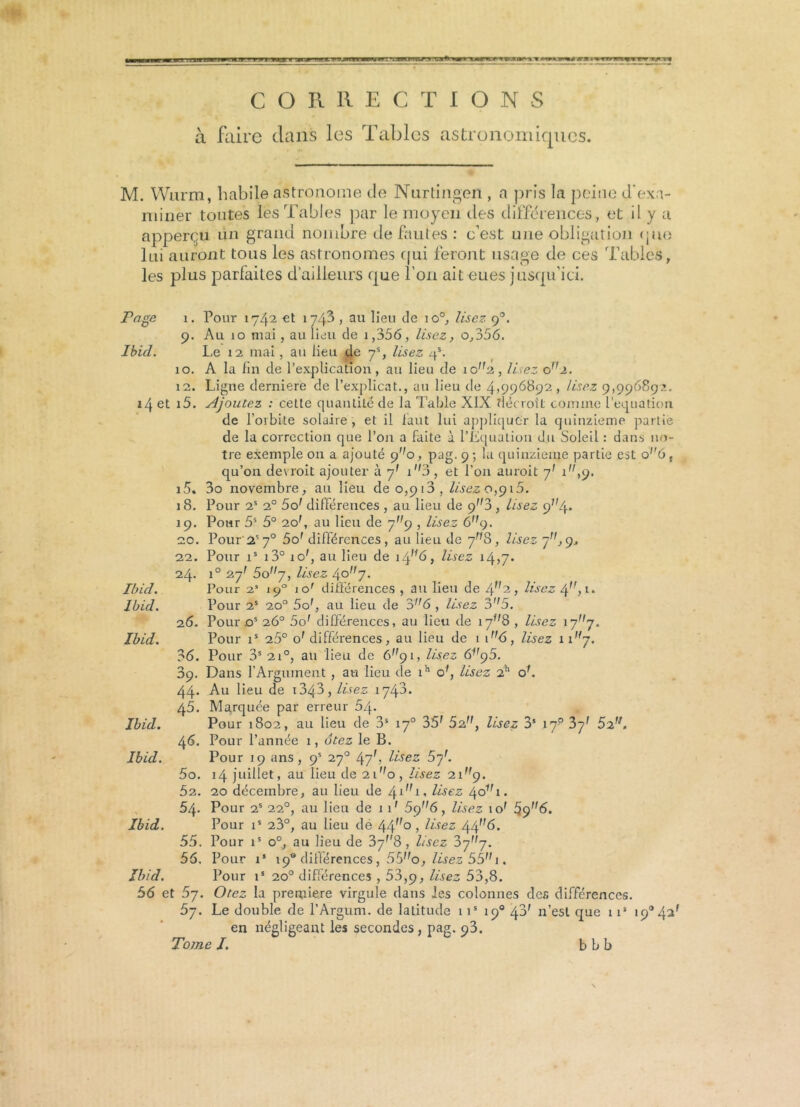 CORRECTIONS
à faire dans les Tables astronomiques.
M. Wurm, habile astronome de Nurtingen , a pris la peine d'exa-
miner toutes les Tables par le moyen des différences, et il y a
apperçu un grand nombre de fautes : c'est une obligation que
lui auront tous les astronomes qui feront usage de ces Tables,
les plus parfaites d'ailleurs que l'on ait eues jusqu'ici.
Page 1. Pour 1742 et 1743 , au lieu de 10°, lisez 9°.
9. Au 10 mai , au lieu de 1,356, lisez, 0,356.
Ibid. Le 12 mai , au lieu de 7ˢ, lisez 4ˢ.
10. A la fin de l'explication, au lieu de 10″2 , lisez 0″2.
12. Ligne derniere de l'explicat., au lieu de 4,996892 , lisez 9,996892.
14 et 15. Ajoutez : cette quantité de la Table XIX décroît comme l'equation
de l'orbite solaire , et il faut lui appliquer la quinzieme partie
de la correction que l'on a faite à l'Équation du Soleil : dans no-
tre exemple on a ajouté 9″0, pag. 9 ; la quinzieme partie est 0″6,
qu'on devroit ajouter à 7′ 1″3 , et l'on auroit 7′ 1″,9.
15. 30 novembre, au lieu de 0,913 , lisez 0,915.
18. Pour 2ˢ 2° 50′ différences , au lieu de 9″3 , lisez 9″4.
19. Pour 5ˢ 5° 20′, au lieu de 7″9 , lisez 6″9.
20. Pour 2ˢ 7° 50′ différences, au lieu de 7″8 , lisez 7″,9.
22. Pour 1ˢ 13° 10′, au lieu de 14″6 , lisez 14,7.
24. 1° 27′ 50″7, lisez 40″7.
Ibid. Pour 2ˢ 19° 10′ différences , au lieu de 4″2 , lisez 4″,1.
Ibid. Pour 2ˢ 20° 50′, au lieu de 3″6 , lisez 3″5.
26. Pour 0ˢ 26° 50′ différences, au lieu de 17″8 , lisez 17″7.
Ibid. Pour 1ˢ 25° 0′ différences, au lieu de 11″6, lisez 11″7.
36. Pour 3ˢ 21°, au lieu de 6″91, lisez 6″95.
39. Dans l'Argument , au lieu de 1ʰ 0′, lisez 2ʰ 0′.
44. Au lieu de 1343, lisez 1743.
45. Marquée par erreur 54.
Ibid. Pour 1802, au lieu de 3ˢ 17° 35′ 52″, lisez 3ˢ 17° 37′ 52″.
46. Pour l'année 1, ôtez le B.
Ibid. Pour 19 ans , 9ˢ 27° 47′, lisez 57′.
50. 14 juillet, au lieu de 21″0 , lisez 21″9.
52. 20 décembre, au lieu de 41″1, lisez 40″1.
54. Pour 2ˢ 22°, au lieu de 11′ 59″6, lisez 10′ 59″6.
Ibid. Pour 1ˢ 23°, au lieu de 44″0 , lisez 44″6.
55. Pour 1ˢ 0°, au lieu de 37″8 , lisez 37″7.
56. Pour 1ˢ 19° différences, 55″0, lisez 55″1.
Ibid. Pour 1ˢ 20° différences , 53,9, lisez 53,8.
56 et 57. Otez la premiere virgule dans les colonnes des différences.
57. Le double de l'Argum. de latitude 11ˢ 19° 43′ n'est que 11ˢ 19° 42′
en négligeant les secondes , pag. 93.
Tome I. b b b